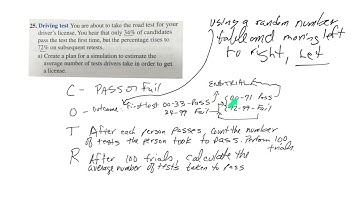 25. Driving test You are about to take the road test for your
driver's license. You hear that only 34% of candidates
pass the test the first time, but the percentage rises to
72% on subsequent retests.
a) Create a plan for a simulation to estimate the
average number of tests drivers take in order to get
a license.
using a random number
table and moving left
to right, Let
C - PASS or Fail
END TRIAL
O - Outcome - First test 00-33 - Pass
34-99 Fail
00-71 Pass
72-99 - Fail
T After each person passes, count the number
of tests the person took to pass. Perform 100
trials
R After 100 trials, calculate the
average number of tests taken to pass